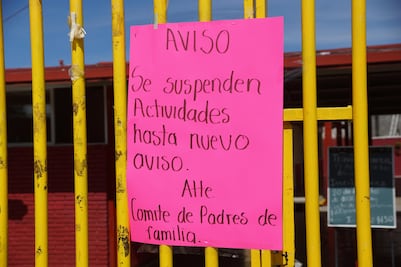 AVISO
Se suspenden
Actividades
hasta nuevo
aviso.
Atte.
Comite de Padres de
familia.
$150